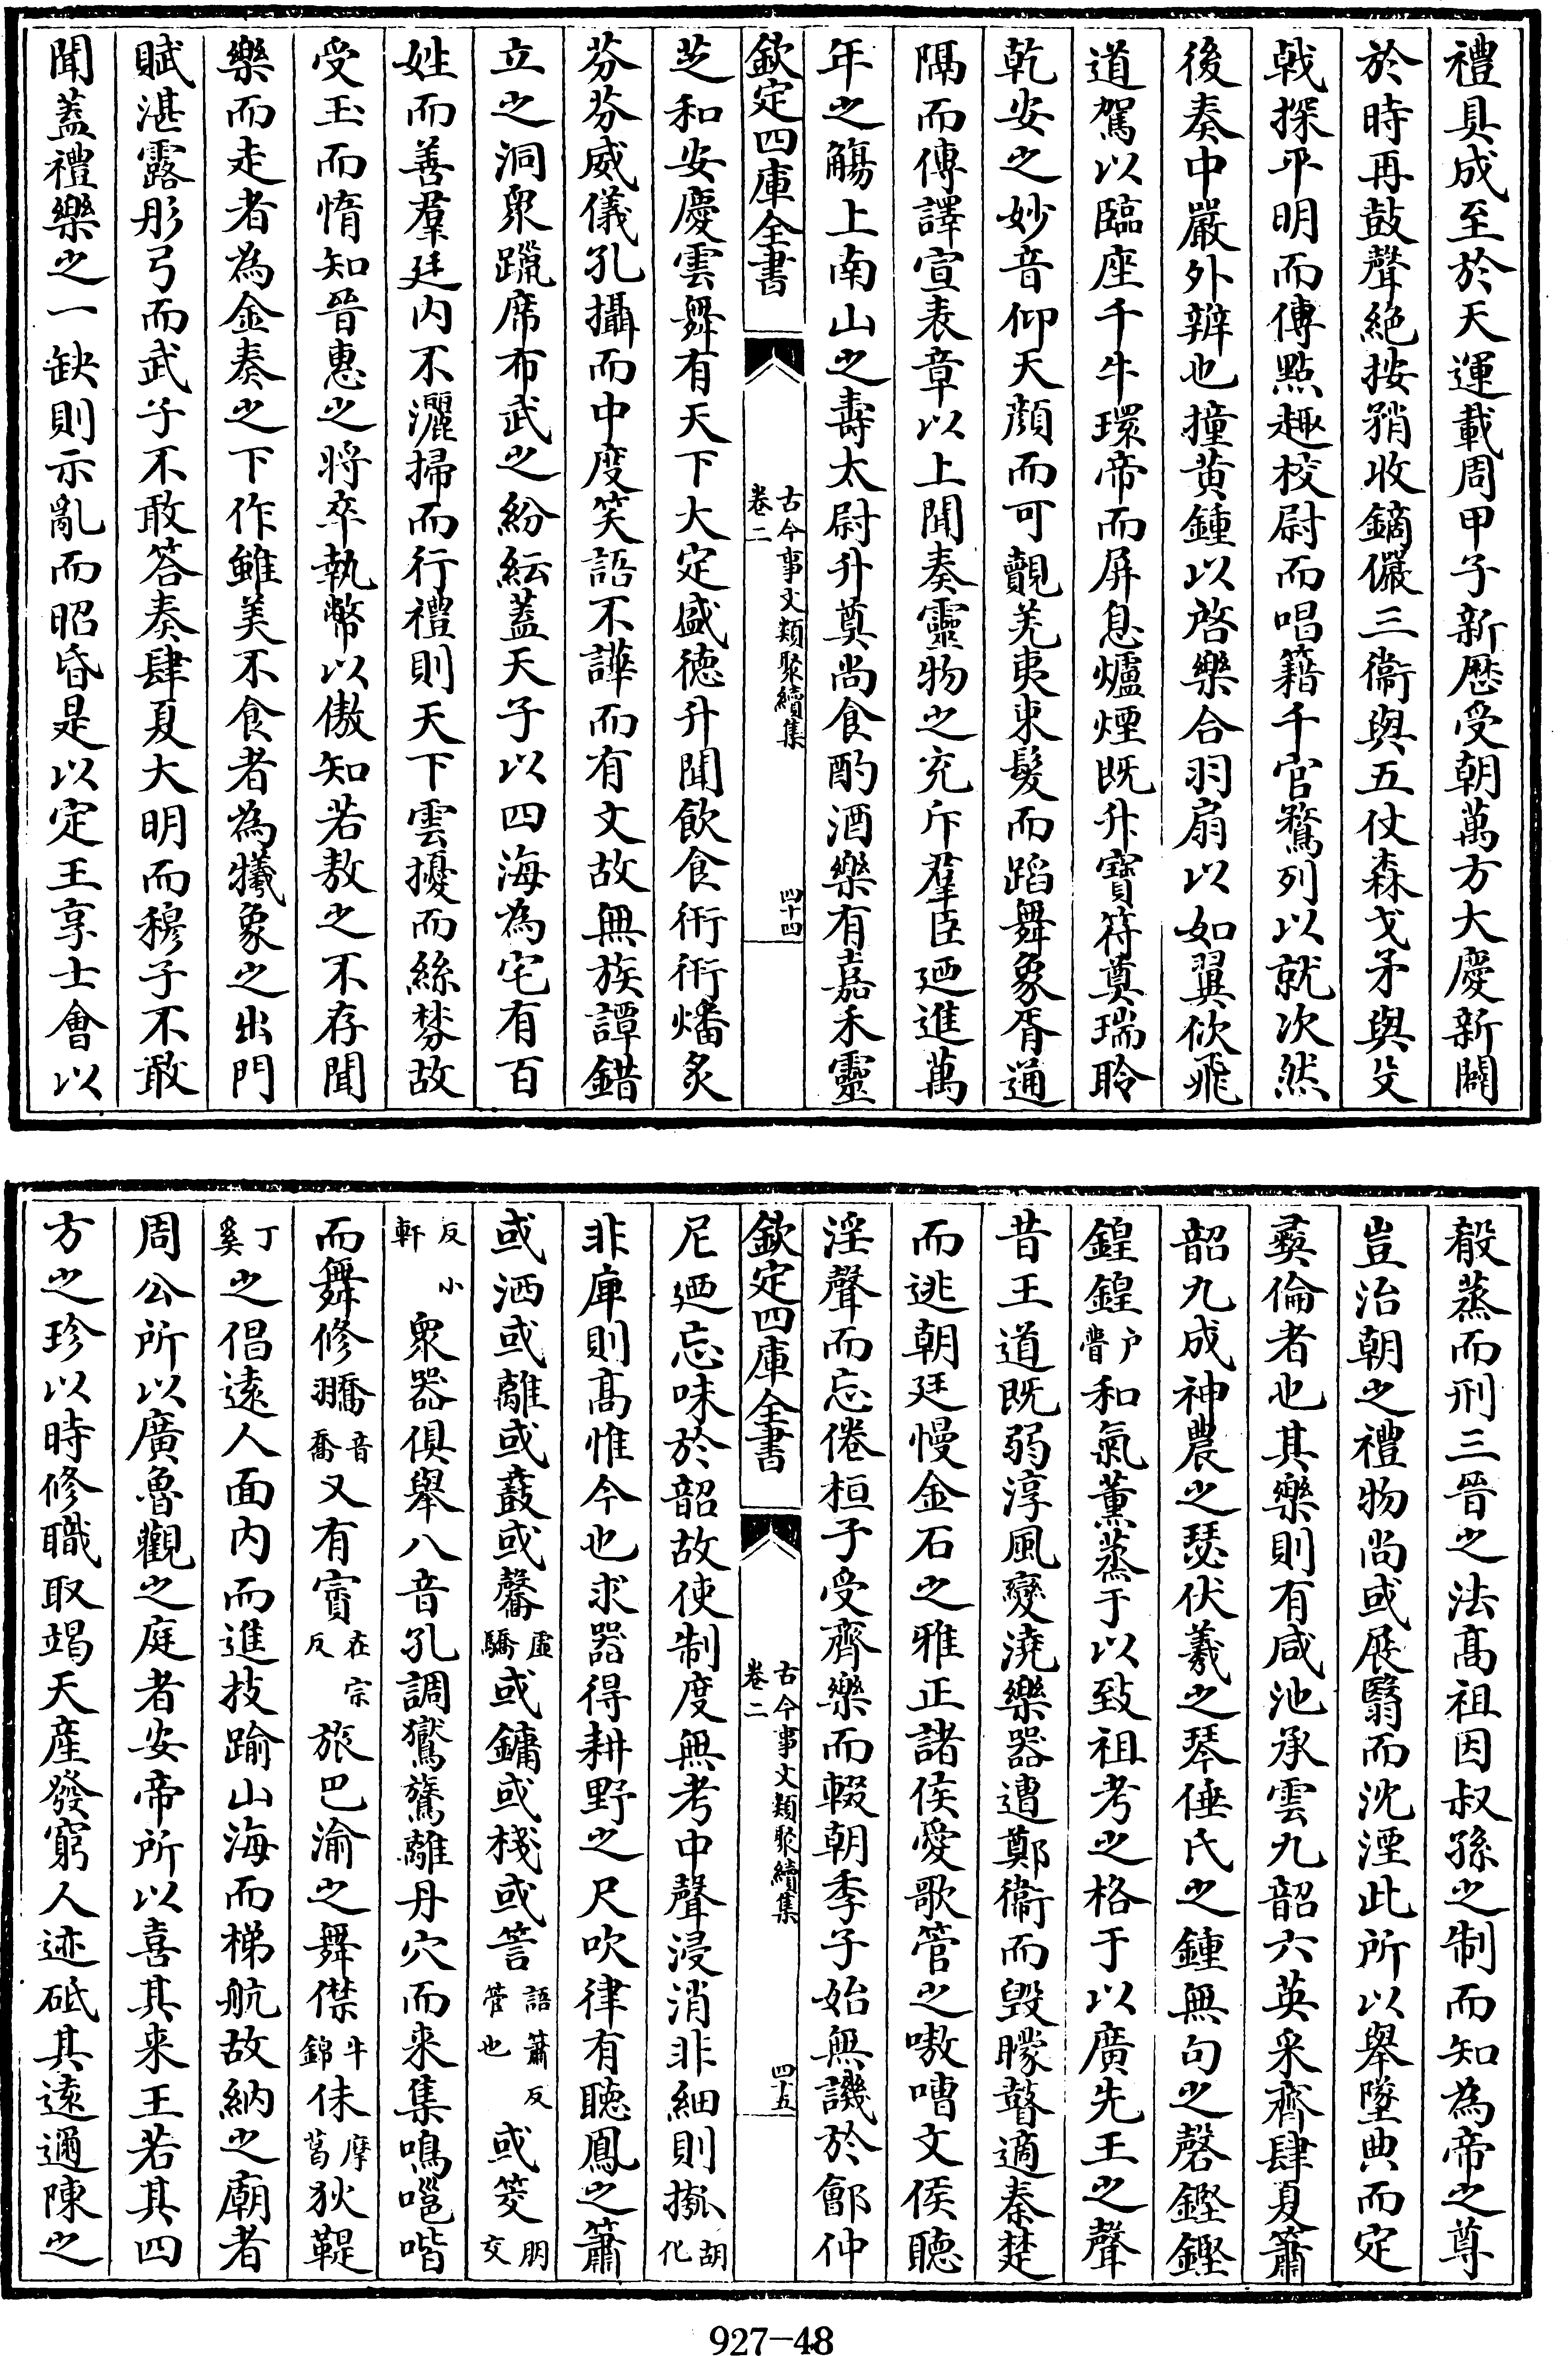 禮具成至於天運載周甲子新歴受朝萬方大慶新闢
於時再鼓聲絶按矟收鏑儼三衞與五仗森戈矛與殳
戟探平明而傳點趣校尉而唱籍千官鶩列以就次然
後奏中嚴外辦也撞黄鍾以啓樂合羽扇以如翼佽飛
道駕以臨座千牛環帝而屏息爐煙既升寳符奠瑞聆
乾安之妙音仰天顔而可覿羌夷束髮而蹈舞象胥通
隔而傳譯宣表章以上聞奏靈物之充斥羣臣廼進萬
年之觴上南山之壽太尉升奠尚食酌酒樂有嘉禾靈
欽定四庫全書
古今事文類聚續集
卷二
四十四
芝和安慶雲舞有天下大定盛德升聞飲食衎衎燔炙
芬芬威儀孔攝而中度笑語不譁而有文故無族譚錯
立之洞衆躐席布武之紛紜蓋天子以四海為宅有百
姓而善羣廷内不灑掃而行禮則天下雲擾而絲棼故
受玉而惰知晉惠之將卒執幣以傲知若敖之不存聞
樂而走者為金奏之下作雖美不食者為犧象之出門
賦湛露彤弓而武子不敢答奏肆夏大明而穆子不敢
聞蓋禮樂之一缺則示亂而昭昏是以定王享士會以
殽蒸而刑三晉之法髙祖因叔孫之制而知為帝之尊
豈治朝之禮物尚或展翳而沈湮此所以舉墜典而定
彛倫者也其樂則有咸池承雲九韶六英采齊肆夏簫
韶九成神農之瑟伏羲之琴倕氏之鍾無句之磬鏗鏗
鍠鍠户薈和氣薫蒸于以致祖考之格于以廣先王之聲
昔王道既弱淳風變澆樂器遭鄭衞而毁矇瞽適秦楚
而逃朝廷慢金石之雅正諸侯愛歌管之嗷嘈文侯聽
淫聲而忘倦桓子受齊樂而輟朝季子始無譏於鄶仲
欽定四庫全書
古今事文類聚續集
卷二
四十五
尼廼忘味於韶故使制度無考中聲浸消非細則摦胡化
非庫則髙惟今也求器得耕野之尺吹律有聽鳳之簫
或洒或離或鼖或馨虛驕或鏞或棧或䇾語簫反管也或筊胡交
反小軒衆器俱舉八音孔調鸑鷟離丹穴而来集鳴嗈喈
而舞修翿音喬又有賨在宗反旅巴渝之舞僸牛錦佅摩葛狄鞮
丁奚之倡逺人面内而進技踰山海而梯航故納之廟者
周公所以廣魯觀之庭者安帝所以喜其来王若其四
方之珍以時修職取竭天産發窮人迹砥其逺邇陳之
927-48